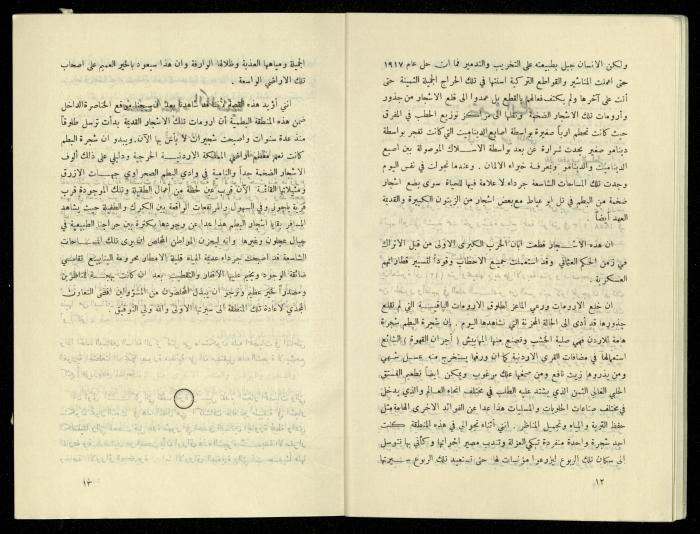 ولكن الانسان جبل بطبيعته على التخريب والتدمير فما ان حل عام ١٩١٧
حتى اعملت المناشير والقواطع التركية اسنتها في تلك الحراج الجميلة الثمينة حتى
أتت على آخرها ولم يكتف فعالهم بالقطع بل عمدوا الى قلع الاشجار من جذور
وأرومات تلك الاشجار الضخمة ونقلها الى مراكز توزيع الحطب في المفرق
حيث كانت تحطم اربا صغيرة بواسطة اصابع الديناميت التي كانت تفجر بواسطة
دينامو صغير يحدث شرارة عن بعد بواسطة الاسلاك الموصولة بين اصبع
الديناميت والدينامو وبمعرفة خبراء الالمان . وعندما تجولت في نفس اليوم
وجدت تلك المساحات الشاسعة جرداء لا علامة فيها للحياة سوى بضع اشجار
ضخمة من البطم في تل ابو عياط مع بعض اشجار من الزيتون الكبيرة والقديمة
العهد أيضاً .
ان هذه الاشجار قطعت ابان الحرب الكبرى الاولى من قبل الاتراك
في زمن الحكم العثماني وقد استعملت جميع الاحطاب وقوداً لتسيير قطاراتهم
العسكرية .
ان خلع الارومات ورعي الماعز لطلوق الارومات الباقية التي لم تقلع
جذورها قد أدى الى الحالة المحزنة التي نشاهدها اليوم . إن شجرة البطم شجرة
هامة للاردن فهي صلبة الخشب وتصنع منها المهابيش ( أجران القهوة ) الشائع
استعمالها في مضافات القرى الاردنية كما ان ورقها يستخرج منه عسل شهي
ومن بذورها زيت نافع ومن صمغها علك مرغوب ويمكن ايضاً تطعيم الفستق
الحلبي الغالي الثمن الذي يشتد عليه الطلب في مختلف انحاء العالم والذي يدخل
في مختلف صناعات الحلويات والمسليات هذا عدا عن الفوائد الاخرى الهامة مثل
حفظ التربة والمياه وتجميل المناظر . انني أثناء تجوالي في هذه المنطقة كنت
اجد شجرة واحدة منفردة تبكي العزلة وتندب مصير اخواتها وكأني بها تتوسل
الى سكان تلك الربوع ليزرعوا مؤنسات لها حتى تستعيد تلك الربوع سيرتها
١٢
الجميلة ومياهها العذبة وظلالها الوارفة وان هذا سيعود بالخير العميم على اصحاب
تلك الاراضي الواسعة .
انني أؤيد هذه القصة لأننا قد شاهدنا بعد ان سيجنا موقع الخناصرة الداخل
ضمن هذه المنطقة البطمية أن ارومات تلك الاشجار القديمة بدأت ترسل طلوقاً
منذ عدة سنوات واصبحت شجيرات لا بأس بها الآن. ويبدو ان شجرة البطم
كانت تعم معظم اراضي المملكة الاردنية الحرجية ودليلي على ذلك ألوف
الاشجار الضخمة جداً والنامية في وادي البطم الصحراوي جهات الازرق
ومثيلاتها القائمة الآن قرب عين لحظة من أعمال الطفيلة وتلك الموجودة قرب
قرية ياجوز وفي السهول والمرتفعات الواقعة بين الكرك والطفيلة حيث يشاهد
المسافر بقايا اشجار البطم هذا عدا عن وجودها بكثرة بين حراجنا الطبيعية في
جبال عجلون وغيرها وانه ليحزن المواطن المخلص ان يرى تلك المساحات
الشاسعة قد اصبحت جرداء عديمة المياه قليلة الامطار محرومة الينابيع تقاسي
ضائقة الوجود ويخيم عليها الاقفار والتقطيب بعد ان كانت بهجة للناظرين
ومصدراً لخير عظيم ونرجو ان يبذل المخلصون من المسؤولين اقصى التعاون
المجدي لاعادة تلك المنطقة الى سيرتها الاولى والله ولي التوفيق .
١٣